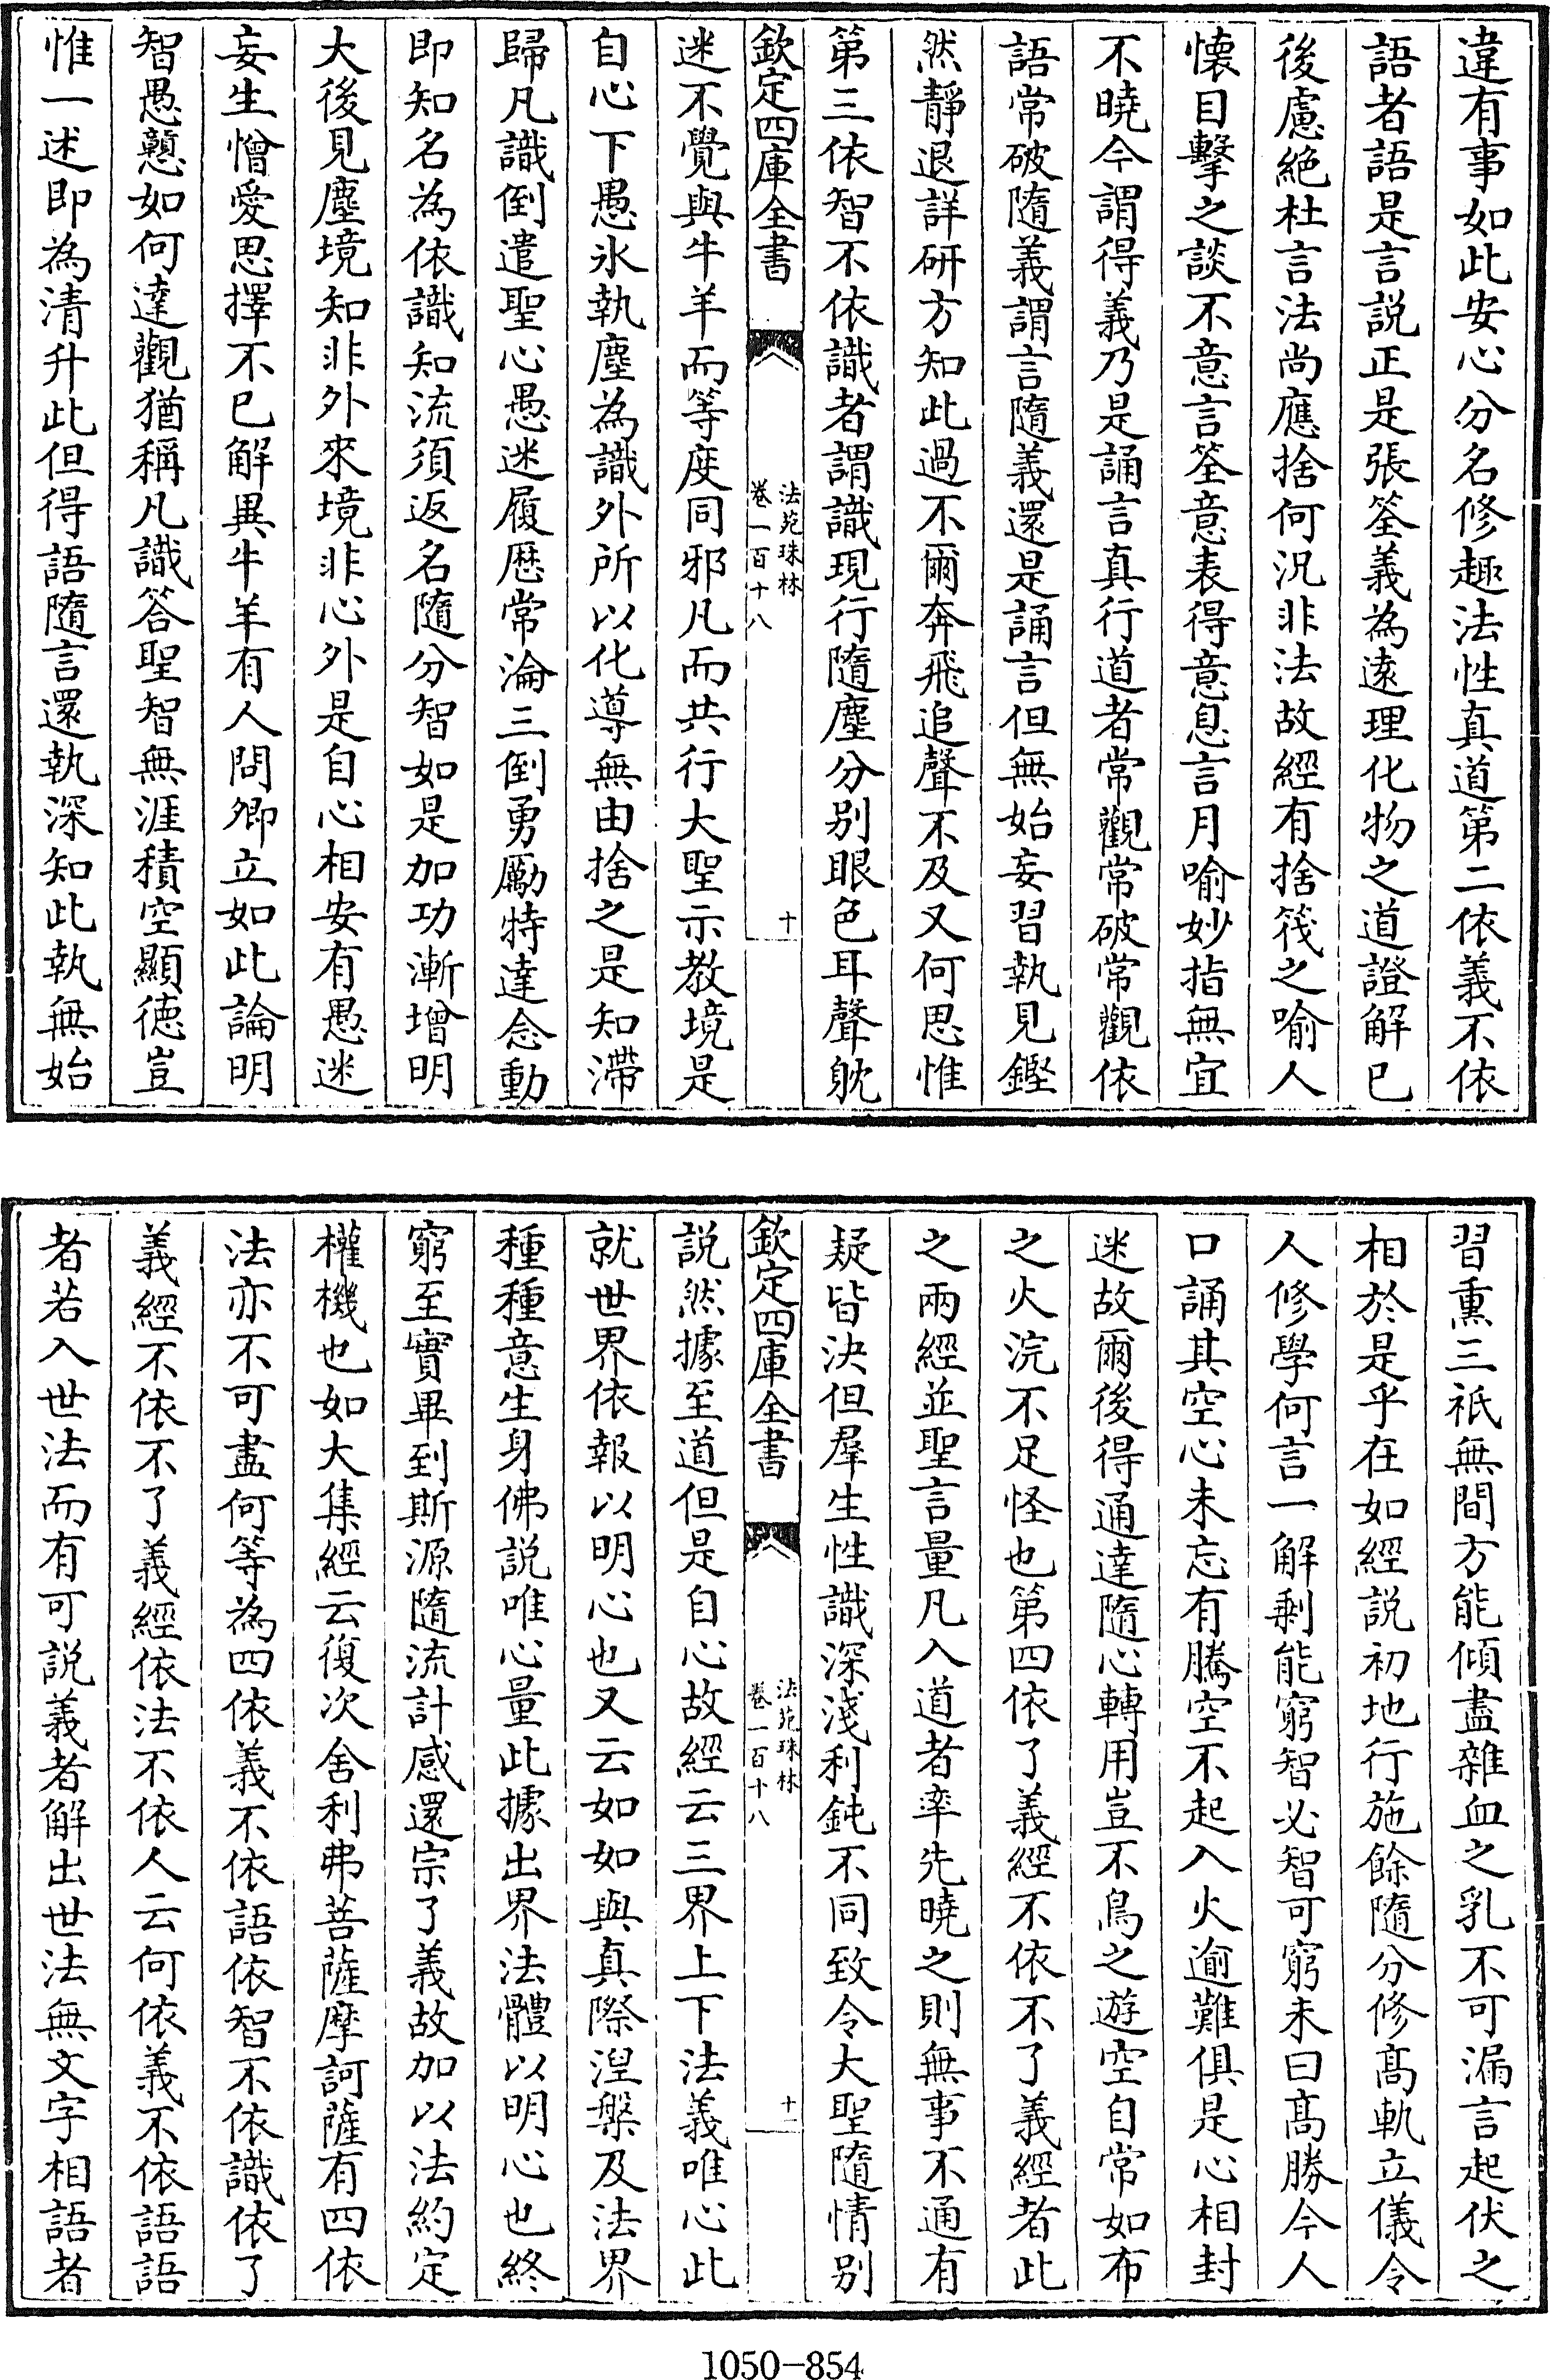 違有事如此安心分名修趣法性真道第二依義不依
語者語是言説正是張筌義為逺理化物之道證解已
後慮絶杜言法尚應捨何況非法故經有捨筏之喻人
懐目擊之談不意言筌意表得意息言月喻妙指無宜
不曉今謂得義乃是誦言真行道者常觀常破常觀依
語常破隨義謂言隨義還是誦言但無始妄習執見鏗
然静退詳研方知此過不爾奔飛追聲不及又何思惟
第三依智不依識者謂識現行隨塵分别眼色耳聲躭
欽定四庫全書
法苑珠林
卷一百十八
十
迷不覺與牛羊而等度同邪凡而共行大聖示教境是
自心下愚氷執塵為識外所以化導無由捨之是知滯
歸凡識倒遣聖心愚迷履厯常淪三倒勇勵特達念動
即知名為依識知流須返名隨分智如是加功漸增明
大後見塵境知非外來境非心外是自心相安有愚迷
妄生憎愛思擇不已解異牛羊有人問卿立如此論明
智愚戇如何達觀猶稱凡識答聖智無涯積空顯徳豈
惟一述即為清升此但得語隨言還執深知此執無始
習熏三祇無間方能傾盡雜血之乳不可漏言起伏之
相於是乎在如經説初地行施餘隨分修髙軌立儀令
人修學何言一解剩能窮智必智可窮未曰髙勝今人
口誦其空心未忘有騰空不起入火逾難俱是心相封
迷故爾後得通達隨心轉用豈不鳥之遊空自常如布
之火浣不足怪也第四依了義經不依不了義經者此
之兩經並聖言量凡入道者率先曉之則無事不通有
疑皆決但羣生性識深淺利鈍不同致令大聖隨情别
欽定四庫全書
法苑珠林
卷一百十八
十一
説然據至道但是自心故經云三界上下法義唯心此
就世界依報以明心也又云如如與真際涅槃及法界
種種意生身佛説唯心量此據出界法體以明心也終
窮至實畢到斯源隨流計感還宗了義故加以法約定
權機也如大集經云復次舍利弗菩薩摩訶薩有四依
法亦不可盡何等為四依義不依語依智不依識依了
義經不依不了義經依法不依人云何依義不依語語
者若入世法而有可説義者解出世法無文字相語者
1050-854